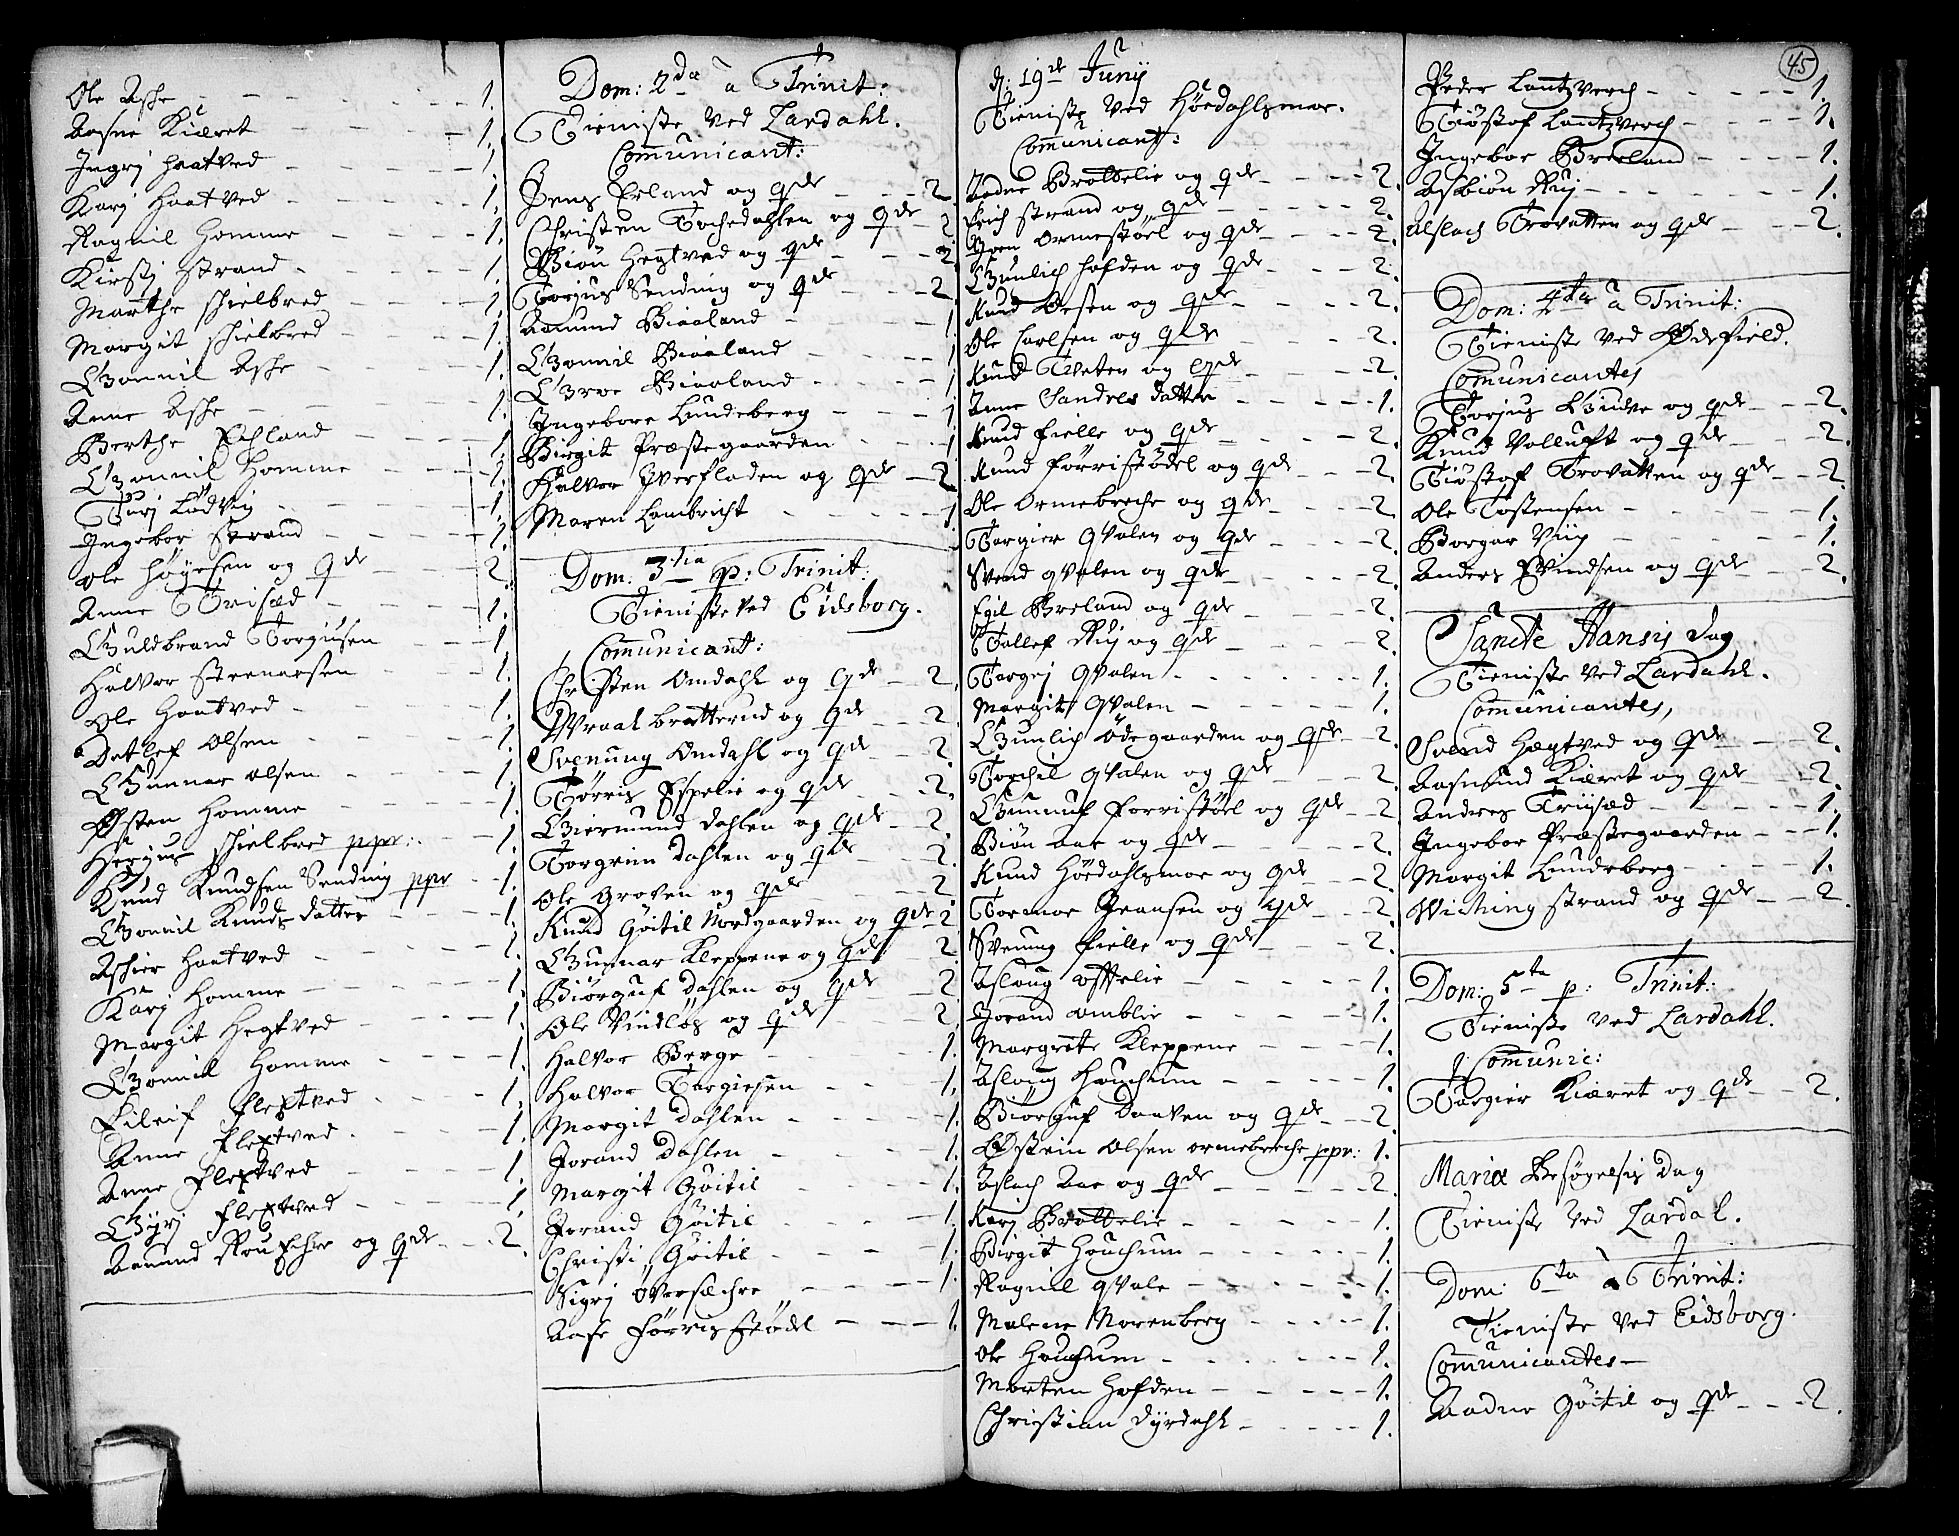 Ole Aske - - - 1.
Aasne Kiæret - - - 1.
Ingrj Haatved - - - 1.
Karj Haatved - - - 1.
Ragnil Homme - - - 1.
Kirstj Strand - - - 1.
Marthe Schielbred - - - 1.
Margit Schielbred - - - 1.
Gonnil Aske - - - 1.
Anne Aske - - - 1.
Berthe Echland - - - 1.
Gonnil Homme - - - 1.
Turj Lødvig - - - 1.
Ingebor Strand - - - 1.
Ole Høyesen og qde - 2.
Anne Trisæd - - - 1.
Guldbrand Torgiusen - - 1.
Halvor Steenersen - - 1.
Ole Haatved - - - 1.
Detlef Olsen - - - 1.
Gunnar Olsen - - - 1.
Østen Homme - - - 1.
Herjus Schielbred ppr: - - 1.
Knud Knudsen Sending ppr - - 1.
Gonnil Knuds datter - - - 1.
Aschier Haatved - - - 1.
Karj Homme - - - 1.
Margit Hegtved - - - 1.
Gonnil Homme - - - 1.
Eileif Flextved - - - 1.
Anne Flextved - - - 1.
Anne Flextved - - - 1.
Gyrj Flextved - - - 1.
Aanund og qde - - 2.
Dom: 2dæ a Trinit:
Tieniste ved Lardahl.
Communicant:
Jens Erland og qde - - 2.
Christen Tochedahlen og qde - 2
Biøn Hegtved og qde - - 2.
Torjus Sending og qde - - 2.
Aamund Biaaland - - 1
Gonnil Biaaland - - 1
Groe Biaaland - - - 1
Ingebore Lundeberg - - 1
Birgit Præstegaarden - - 1
Halvor Iverfladen og qde - 2
Maren Lambricht - - - 1
Dom: 3tia p: Trinit:
Tieniste ved Eidsborg.
Communicant:
Christen Omdahl og qde - 2.
Wraal bratterud og qde - - 2.
Svenung Omdahl og qde - - 2.
Tørris Espelie og qde - - 2.
Giermund Dahlen og qde - - 2.
Torgrim Dahlen og qde - - 2.
Ole Groven og qde - - 2
Knud Gøitil Nordgaarden og qde - 2
Gunnar Kleppene og qde 2
Biørguf Dahlen og qde - - 2
Ole Vindlos og qde - - 2
Halvor Berge - - - 1.
Halvor Torgiesen - - - 1.
Margit Dahlen - - - 1.
Jorand Dahlen - - - 1.
Margit Gøitil - - - 1.
Jorand Gøitil - - - 1.
Christi Gøitil - - - 1.
Sigrj Øversæchre - - - 1.
Aase Førrisstødel - - - 1.
d: 19de Junij
Tieniste ved Høedahlsmoe.
Communicant:
Aadne Brattelie og qde - - - 2.
Erich Strand og qde - - - 2.
Joen Ormestøel og qde - - - 2.
Gunlich Hofden og qde - - - 2.
Knud Øesen og qde - - - 2.
Ole Carlsen og qde - - - 2.
Knud Tveten og qde - - - 2.
Anne Sandres datter - - - 1.
Knud Fielle og qde - - - 2.
Knud Førristødel og qde - - 2.
Ole Ormebreche og qde - - - 2.
Torgier Qvalen og qde - - - 2.
Svend Qvalen og qde - - - 2.
Egil Breland og qde - - - 2.
Tollef Ruj og qde - - - 2.
Torgrj Qvalen - - - 1.
Margit Qvalen - - - 1.
Gunlich Ødegaarden og qde - - 2.
Torchil Qvalen og qde - - - 2
Gunnuf Forristøel og qde - - 2
Biøn Aae og qde - - - 2.
Knud Høedahlsmoe og qde - - 2.
Tormoe Jransen og qde - - 2.
Svenung Fielle og qde - - - 2.
Aslaug Offtelie - - - 1.
Jorand Omblie - - - 1.
Margrete Kleppene - - - 1.
Aslaug Houchum - - - 1.
Biørguf Daaven og qde - - 2.
Østein Olsen Ormebreche ppr: 1.
Aslach Aae og qde - - - 2.
Karj Brattelie - - - 1.
Birgit Houchum - - - 1.
Ragnil Qvale - - - 1.
Malene Morenberg - - - 1.
Ole Houchum - - - 1.
Morten Hofden - - - 1.
Christian Dyrdahl - - - 1.
45
Peder Landtzverch - - - 1.
Tiøstof Landtzverch - - - 1.
Ingebor Breeland - - - 1.
Asbiøn Ruj - - - 1.
Aslach Trovatten og qde - - 2.
Dom: 4ta a Trinit:
Tieniste ved Ødefield.
Communicantes
Torjus Gunve og qde - - 2.
Knud Volluft og qde - - 2.
Tiøstof Trovatten og qde - - 2.
Ole Tostensen - - - 1.
Borgar Viig - - - 1.
Anders Evindsen og qde - - 2.
Sancte Hansis dag
Tieniste ved Lardahl.
Communicantes,
Svend Hægtved og qde - - 2.
Aasmund Kiæret og qde - - 2.
Anders Triisæd - - - 1.
Ingebor Præstegaarden - - - 1.
Margit Lundeberg - - - 1.
Wiching Strand og qde - - 2.
Dom: 5ta p: Trinit:
Tieniste ved Lardahl.
Communic:
Torgier Kiæret og qde - - 2.
Mariæ Besøgelsis Dag
Tieniste ved Lardal.
Dom: 6ta a Trinit:
Tieniste ved Eidsborg.
Communicantes -
Aadne Gøitil og qde - - 2.